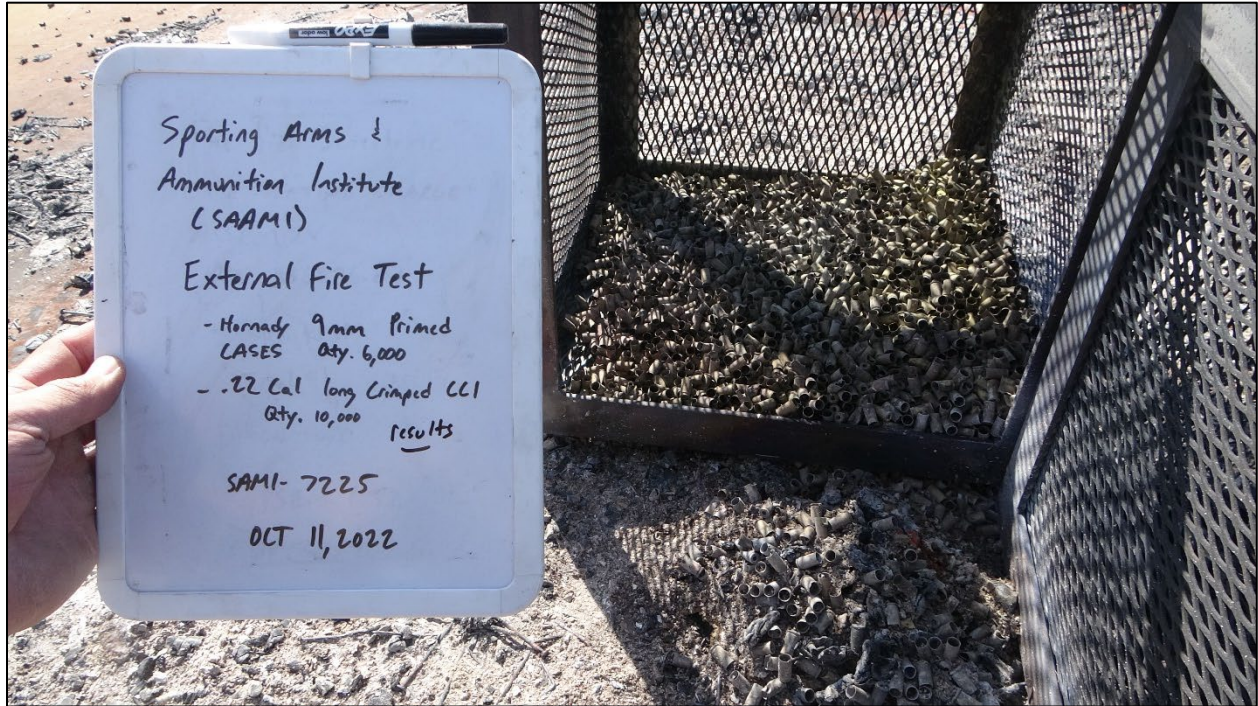 EXPO low odor
Sporting Arms &
Ammunition Institute
(SAAMI)
External Fire Test
- Hornady 9mm Primed
CASES Qty. 6,000
- .22 Cal long Crimped CCI
Qty. 10,000
results
SAMI- 7225
OCT 11, 2022